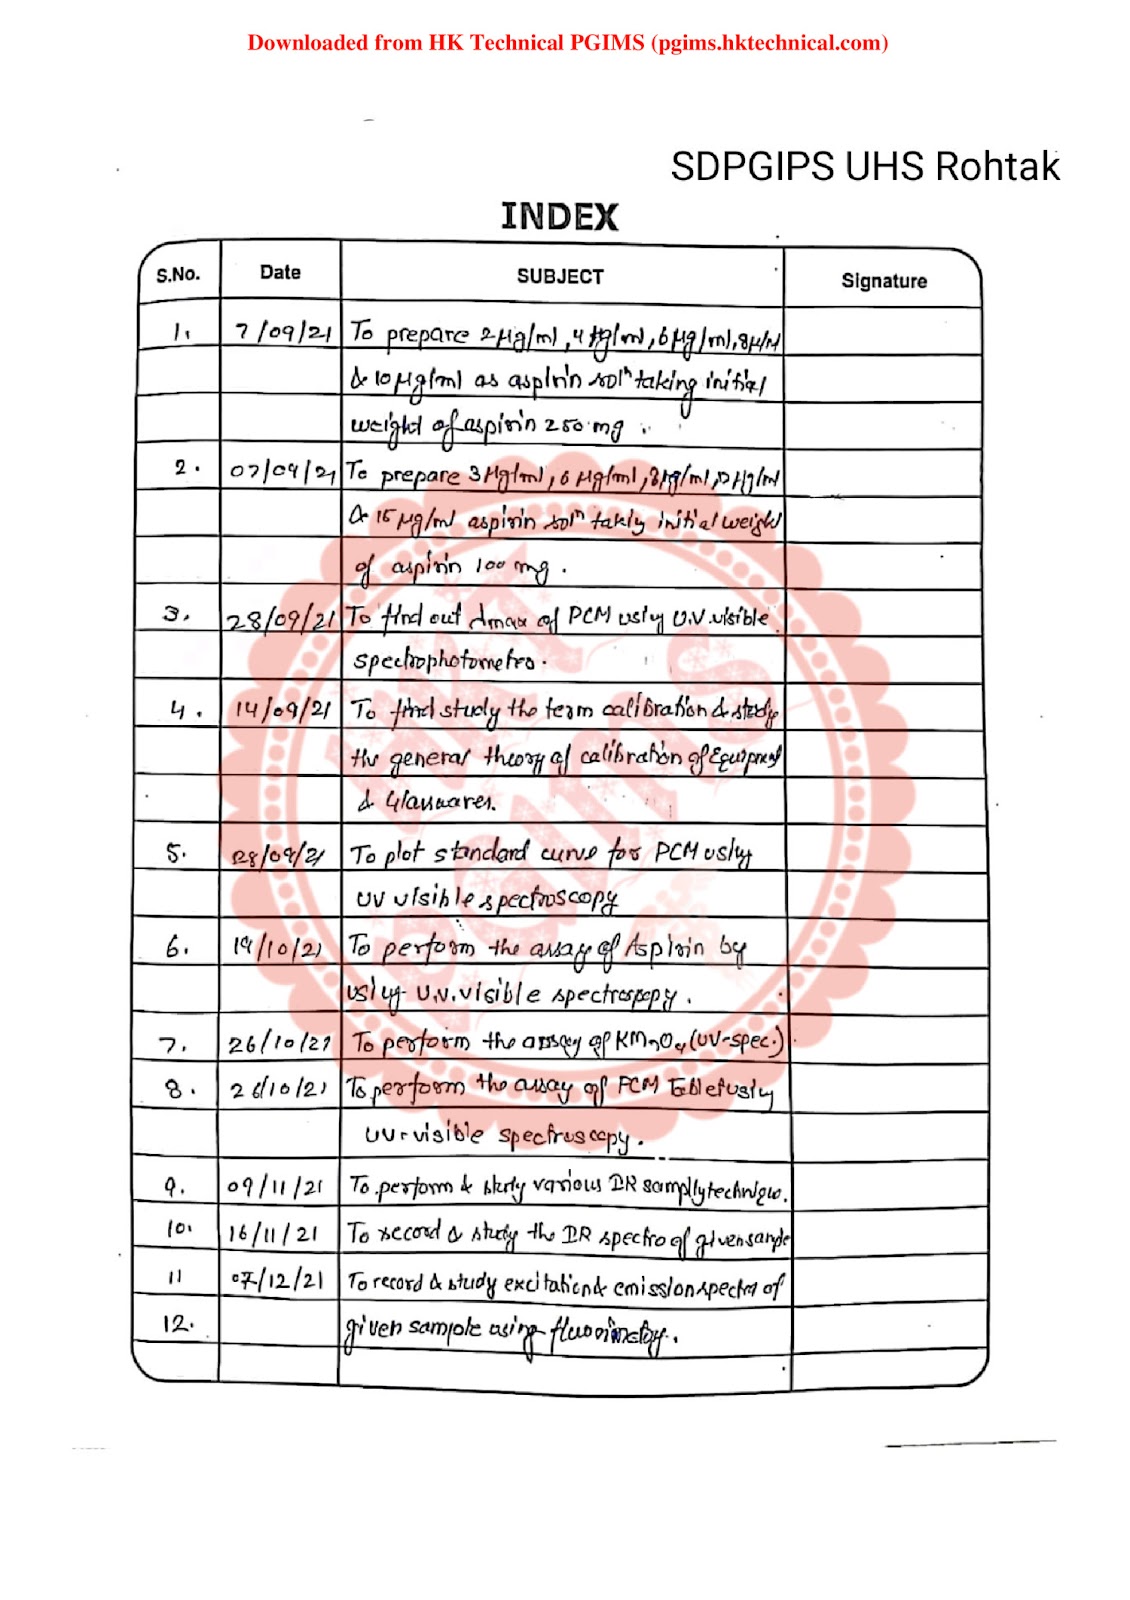 Downloaded from HK Technical PGIMS (pgims.hktechnical.com)
SDPGIPS UHS Rohtak
INDEX
S.No. Date SUBJECT Signature
1. 7/09/21 To prepare 2μg/ml, 4μg/ml, 6μg/ml, 8μ/ml
& 10μg/ml as aspirin solⁿ taking initial
weight of aspirin 250 mg.
2. 07/09/21 To prepare 3μg/ml, 6μg/ml, 8μg/ml, 12μg/ml
& 15μg/ml aspirin solⁿ takly initial weight
of aspirin 100 mg.
3. 28/09/21 To find out λmax of PCM usly U.V. visible
spectrophotometro.
4. 14/09/21 To find study the term calibration & study
the general theory of calibration of Equipment
& Glasswares.
5. 28/09/21 To plot standard curve for PCM usly
UV visible spectroscopy
6. 19/10/21 To perform the assay of Aspirin by
usly U.V. visible spectroscopy.
7. 26/10/21 To perform the assay of KMnO₄ (UV-spec.)
8. 26/10/21 To perform the assay of PCM Tablet usly
UV-visible spectroscopy.
9. 09/11/21 To perform & study various IR samplly technique.
10. 16/11/21 To record & study the IR spectro of given sample
11 07/12/21 To record & study excitation & emission spectra of
12. given sample using fluorimetry.
HKT
PGIMS